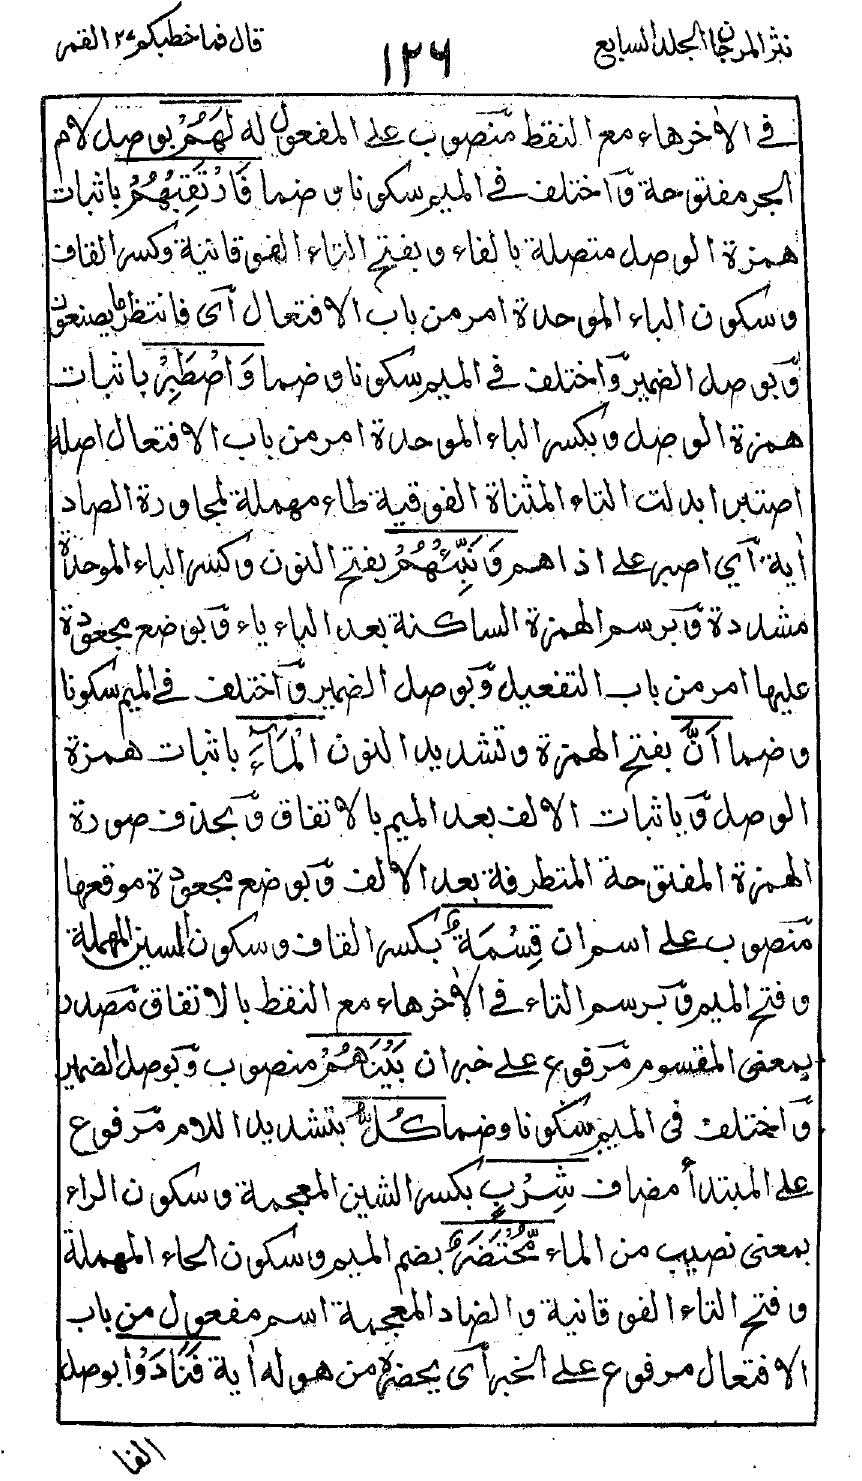 نثر المرجان الجلد السابع
١٢٦
قال فما خطبكم ٢٧ القمر
في الاخر هاء مع النقط منصوب على المفعول له لَهُمْ بوصل لام
الجر مفتوحة واختلف في الميم سكونا و ضما فَارْتَقِبْهُمْ باثبات
همزة الوصل متصلة بالفاء و بفتح التاء الفوقانية وكسر القاف
وسكون الباء الموحدة امر من باب الافتعال آى فانتظر ما يصنعون
وبوصل الضمير واختلف في الميم سكونا و ضما وَاصْطَبِرْ باثبات
همزة الوصل وبكسر الباء الموحدة امر من باب الافتعال اصله
اصتبر ابدلت التاء المثناة الفوقية طاء مهملة لمجاورة الصاد
أية آي اصبر على اذاهم وَنَبِّئْهُمْ بفتح النون وكسر الباء الموحدة
مشددة وبرسم الهمزة الساكنة بعد الباء ياء وبوضع مجعودة
عليها امر من باب التفعيل وبوصل الضمير واختلف في الميم سكونا
و ضما اَنَّ بفتح الهمزة وتشديد النون الْمَآءَ باثبات همزة
الوصل وباثبات الالف بعد الميم بالاتفاق وبحذف صورة
الهمزة المفتوحة المتطرفة بعد الالف وبوضع مجعودة موقعها
منصوب على اسم ان قِسْمَةٌ بكسر القاف وسكون السين المهملة
وفتح الميم وبرسم التاء في الاخر هاء مع النقط بالاتفاق مصدر
بمعنى المقسوم مرفوع على خبر ان بَيْنَهُمْ منصوب وبوصل الضمير
واختلف في الميم سكونا وضما كُلُّ بتشديد اللام مرفوع
على المبتدأ مضاف شِرْبٍ بكسر الشين المعجمة وسكون الراء
بمعنى نصيب من الماء مُّحْتَضَرٌ بضم الميم وسكون الحاء المهملة
وفتح التاء الفوقانية والضاد المعجمة اسم مفعول من باب
الافتعال مرفوع على الخبر آى يحضره من هو له أية فَنَادَوْا بوصل
الفا